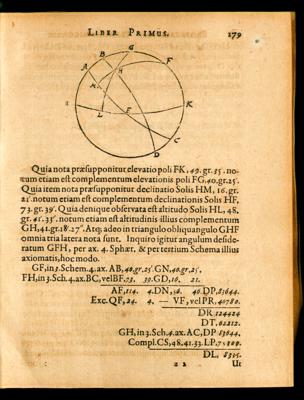 LIBER PRIMUS. 179
B G F
A H
M
K
L E
C
D
Quia nota præsupponitur elevatio poli FK, 49. gr. 35. no-
tum etiam est complementum elevationis poli FG. 40. gr. 25'.
Quia item nota præsupponitur declinatio Solis HM, 16. gr.
21'. notum etiam est complementum declinationis Solis HF,
73. gr. 39'. Quia denique observata est altitudo Solis HL, 48.
gr. 41. 33". notum etiam est altitudinis illius complementum
GH, 41. gr. 18'. 27". Atq; adeo in triangulo obliquangulo GHF
omnia tria latera nota sunt. Inquiro igitur angulum deside-
ratum GFH, per ax. 4. Sphær. & per tertium Schema illius
axiomatis, hoc modo.
GF, in 3. Schem. 4. ax. AB, 40. gr. 25'. GN, 40. gr. 25'.
FH, in 3. Sch. 4. ax. BC, vel BF. 73. 39. GD, 16. 21.
AF, 114. 4. DN, 56. 46. DP, 83644.
Exc. QF, 24. 4. — VF, vel PR, 40780.
DR 124424
DT. 62212.
GH, in 3. Sch. 4. ax. AC, DP 83644.
Compl. CS, 48. 41. 33. LP.
DL, 8535.
Ut